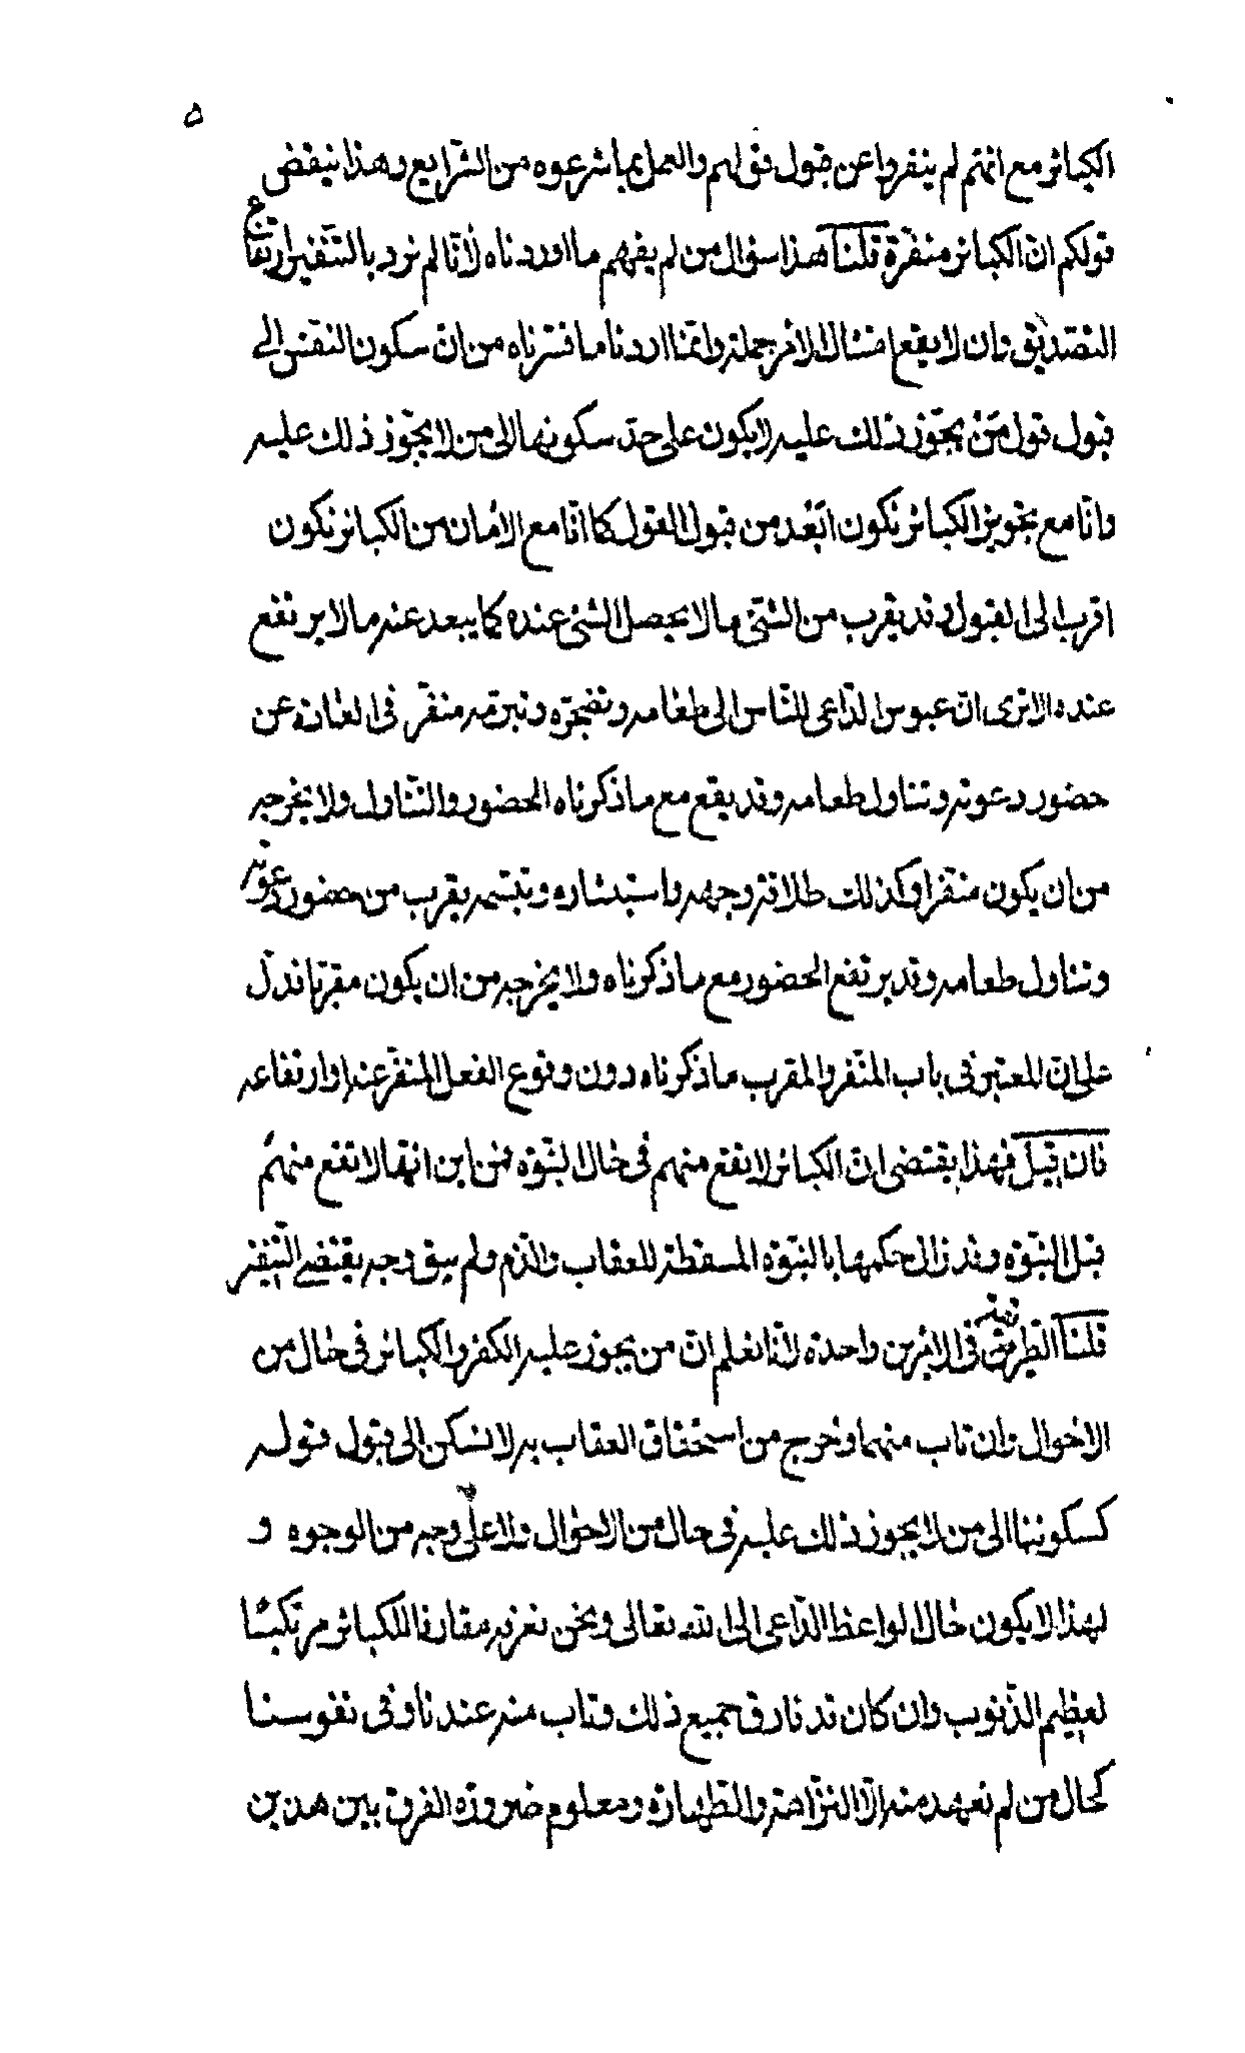 ٥
الكبائر مع انهم لم ينفروا عن قبول قولهم والعمل بما شرعوه من الشرايع وهذا ينقض
قولكم ان الكبائر منفرة قلنا هذا سؤال من لم يفهم ما اوردناه لانا لم نرد بالتنفير ارتفاع
التصديق وان لا يقع امتثال الامر جملة وانما اردنا ما فسرناه من ان سكون النفس الى
قبول قول من يجوز ذلك عليه لا يكون على حد سكونها الى من لا يجوز ذلك عليه
وانا مع تجويز الكبائر نكون ابعد من قبول القول كما انا مع الامان من الكبائر نكون
اقرب الى القبول وقد يقرب من الشئ ما لا يحصل الشئ عنده كما يبعد عنه ما لا يرتفع
عنده الا ترى ان عبوس الداعى للناس الى طعامه وتضجره وتبرمه منفر فى العادة عن
حضور دعوته وتناول طعامه وقد يقع مع ما ذكرناه الحضور والتناول ولا يخرجه
من ان يكون منفرا وكذلك طلاقة وجهه واستبشاره وتبسمه يقرب من حضور دعوته
وتناول طعامه وقد يرتفع الحضور مع ما ذكرناه ولا يخرجه من ان يكون مقربا فدل
على ان المعتبر فى باب المنفر والمقرب ما ذكرناه دون وقوع الفعل المنفر عنه او ارتفاعه
فان قيل فهذا يقتضى ان الكبائر لا تقع منهم فى حال النبوة فمن اين انها لا تقع منهم
قبل النبوة وقد زال حكمها بالنبوة المسقطة للعقاب والذم ولم يبق وجه يقتضى التنفير
قلنا الطريقة فى الامرين واحدة لانا نعلم ان من يجوز عليه الكفر والكبائر فى حال من
الاحوال وان تاب منهما وخرج من استحقاق العقاب به لا نسكن الى قبول قوله
كسكوننا الى من لا يجوز ذلك عليه فى حال من الاحوال ولا على وجه من الوجوه و
لهذا لا يكون حال الواعظ الداعى الى الله تعالى ونحن نعرفه مقارفا للكبائر مرتكبا
لعظيم الذنوب وان كان قد فارق جميع ذلك وتاب منه عندنا وفى نفوسنا
كحال من لم نعهد منه الا النزاهة والطهارة ومعلوم ضرورة الفرق بين هذين